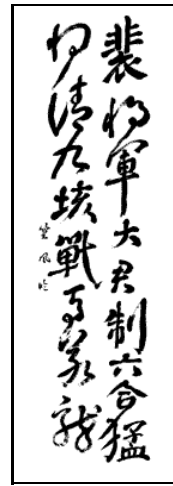 裴將軍大君制六合猛
將清九垓戰馬若龍